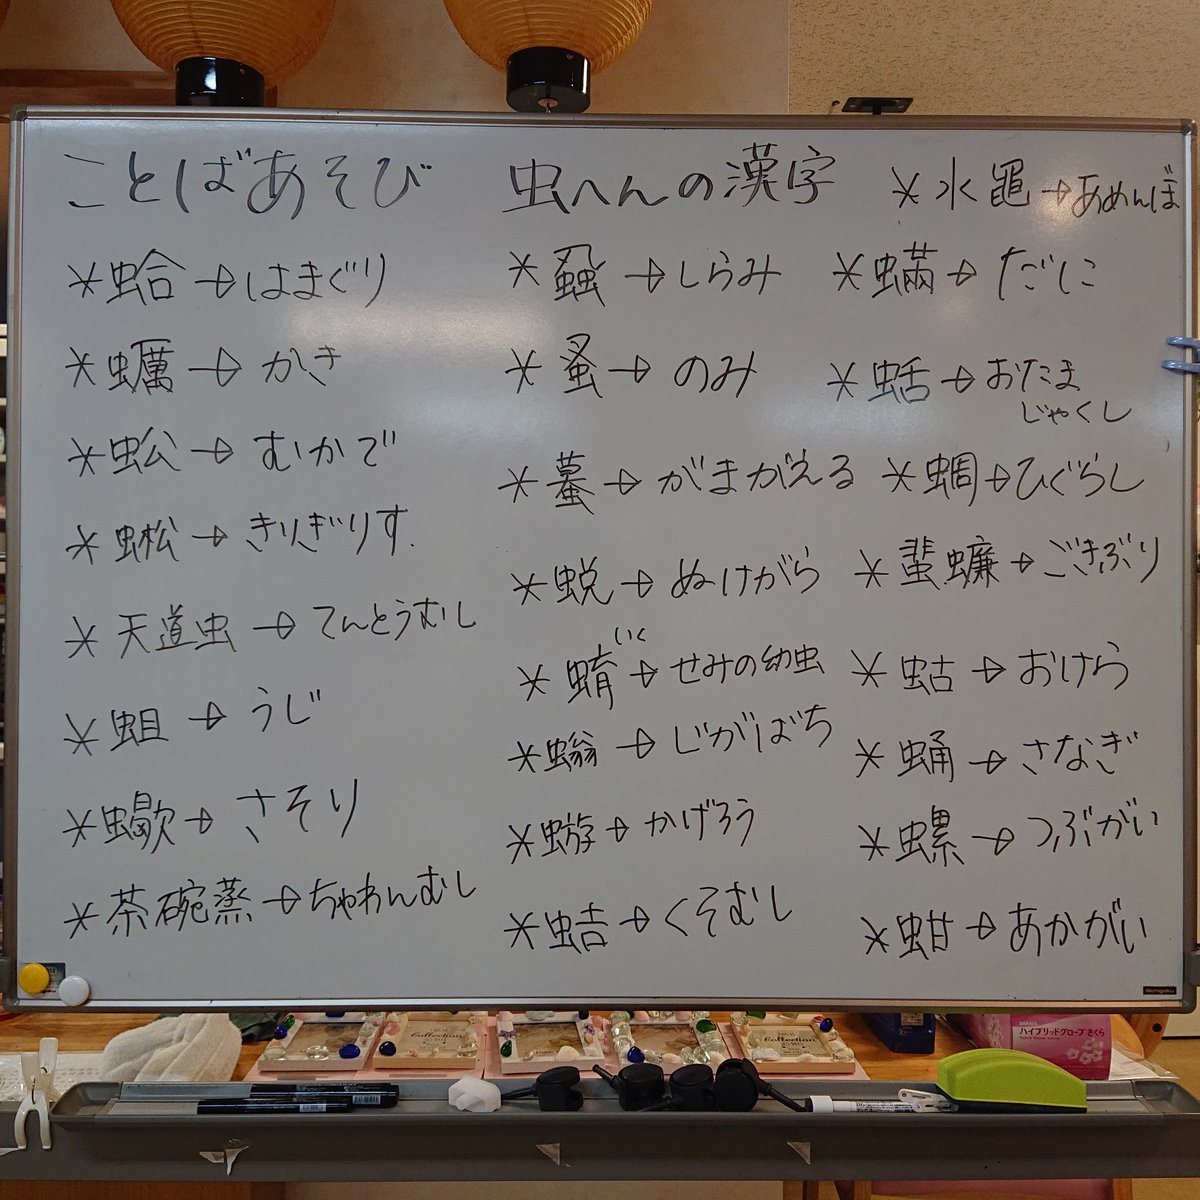 ことばあそび 虫へんの漢字
*水黽→あめんぼ
*蛤→はまぐり
*蠣→かき
*蚣→むかで
*蜙→きりぎりす
*天道虫→てんとうむし
*蛆→うじ
*蠍→さそり
*茶碗蒸→ちゃわんむし
*蝨→しらみ
*蚤→のみ
*蟇→がまがえる
*蛻→ぬけがら
いく
*蜟→せみの幼虫
*螉→じがばち
*蝣→かげろう
*蛣→くそむし
*蟎→だに
*蛞→おたま
じゃくし
*蜩→ひぐらし
*蜚蠊→ごきぶり
*蛄→おけら
*蛹→さなぎ
*螺→つぶがい
*蚶→あかがい
Nichigaku
Collection
Collection
ハイブリッドグローブ さくら